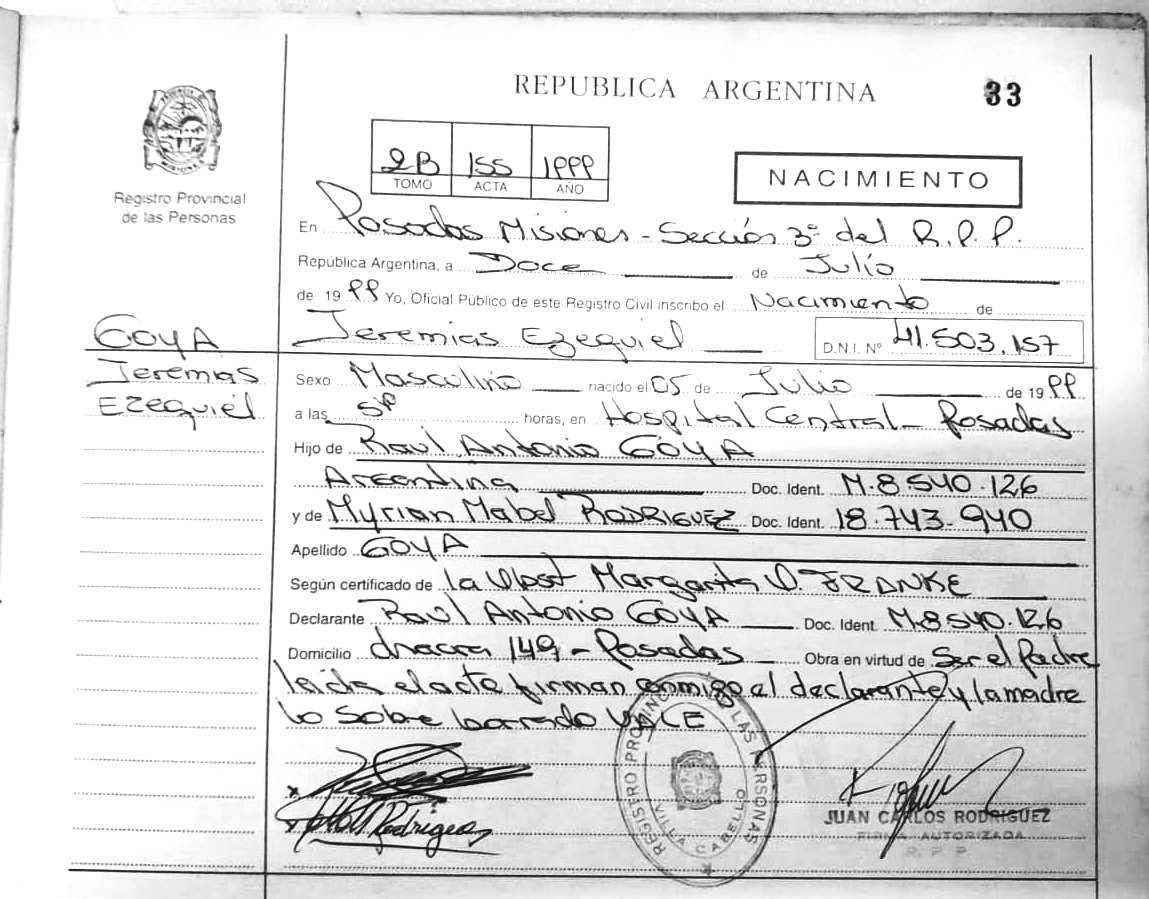 REPUBLICA ARGENTINA
33
Registro Provincial
de las Personas
2B 155 1999
TOMO ACTA AÑO
NACIMIENTO
En Posadas Misiones - Sección 3º del R.P.P.
República Argentina, a Doce de Julio
de 1999 Yo, Oficial Público de este Registro Civil inscribo el Nacimiento de
GOYA
Jeremias Ezequiel D.N.I. Nº 41.503.157
Jeremias
Ezequiel
Sexo Masculino nacido el 05 de Julio de 1999
a las horas, en Hospital Central - Posadas
Hijo de Raul Antonio GOYA
Argentina Doc. Ident. M.8540.126
y de Myrian Mabel RODRIGUEZ Doc. Ident. 18.743.940
Apellido GOYA
Según certificado de la Obst Margarita D. FRANKE
Declarante Raul Antonio GOYA Doc. Ident. M.8540.126
Domicilio chacra 149 - Posadas Obra en virtud de Ser el Padre
leida el acta firman conmigo el declarante y la madre
lo Sobre borrado VALE
REGISTRO PROVINCIAL DE LAS PERSONAS
VILLA CABELLO
Rodriguez
JUAN CARLOS RODRIGUEZ
FIRMA AUTORIZADA
R. P. P.